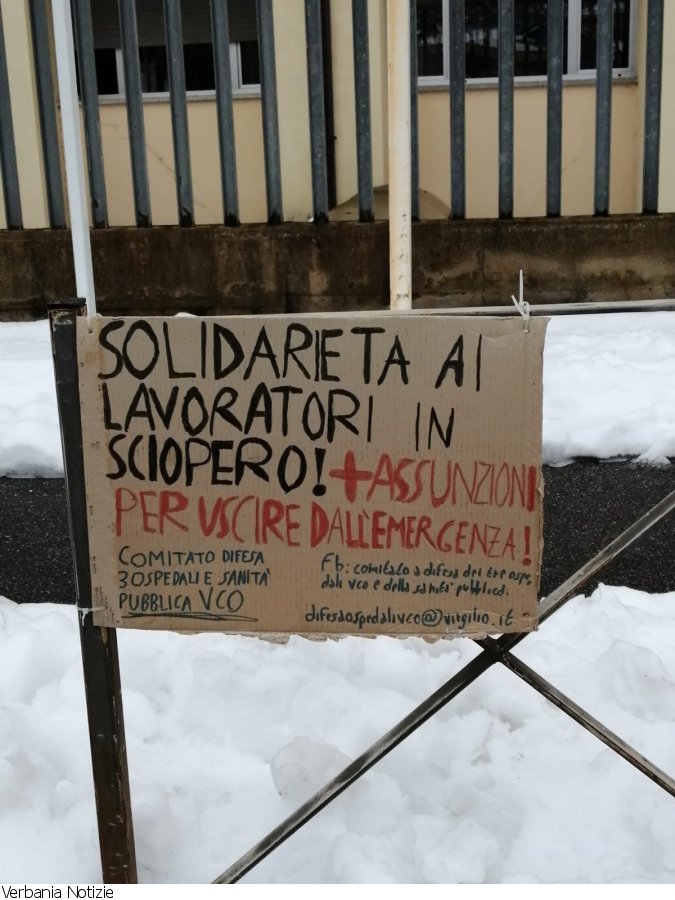 SOLIDARIETA AI
LAVORATORI IN
SCIOPERO! + ASSUNZIONI
PER USCIRE DALL'EMERGENZA!
COMITATO DIFESA
3 OSPEDALI E SANITA'
PUBBLICA VCO
Fb: comitato a difesa dei tre osps
dali vco e della sanita' pubblica.
difesaospedalivco@virgilio.it
Verbania Notizie